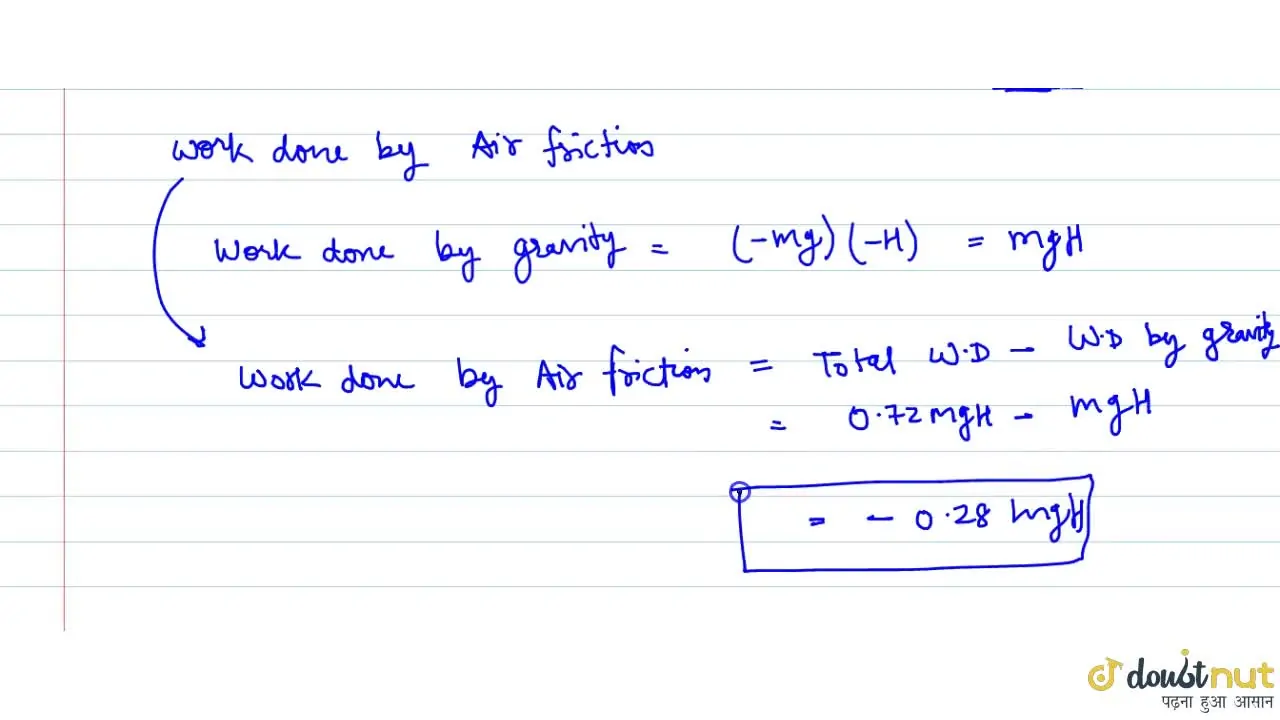 work done by Air friction
work done by gravity = (-mg) (-H) = mgH
work done by Air friction = Total W.D - W.D by gravity
= 0.72 mgH - mgH
= - 0.28 mgH
doubtnut
पढ़ना हुआ आसान